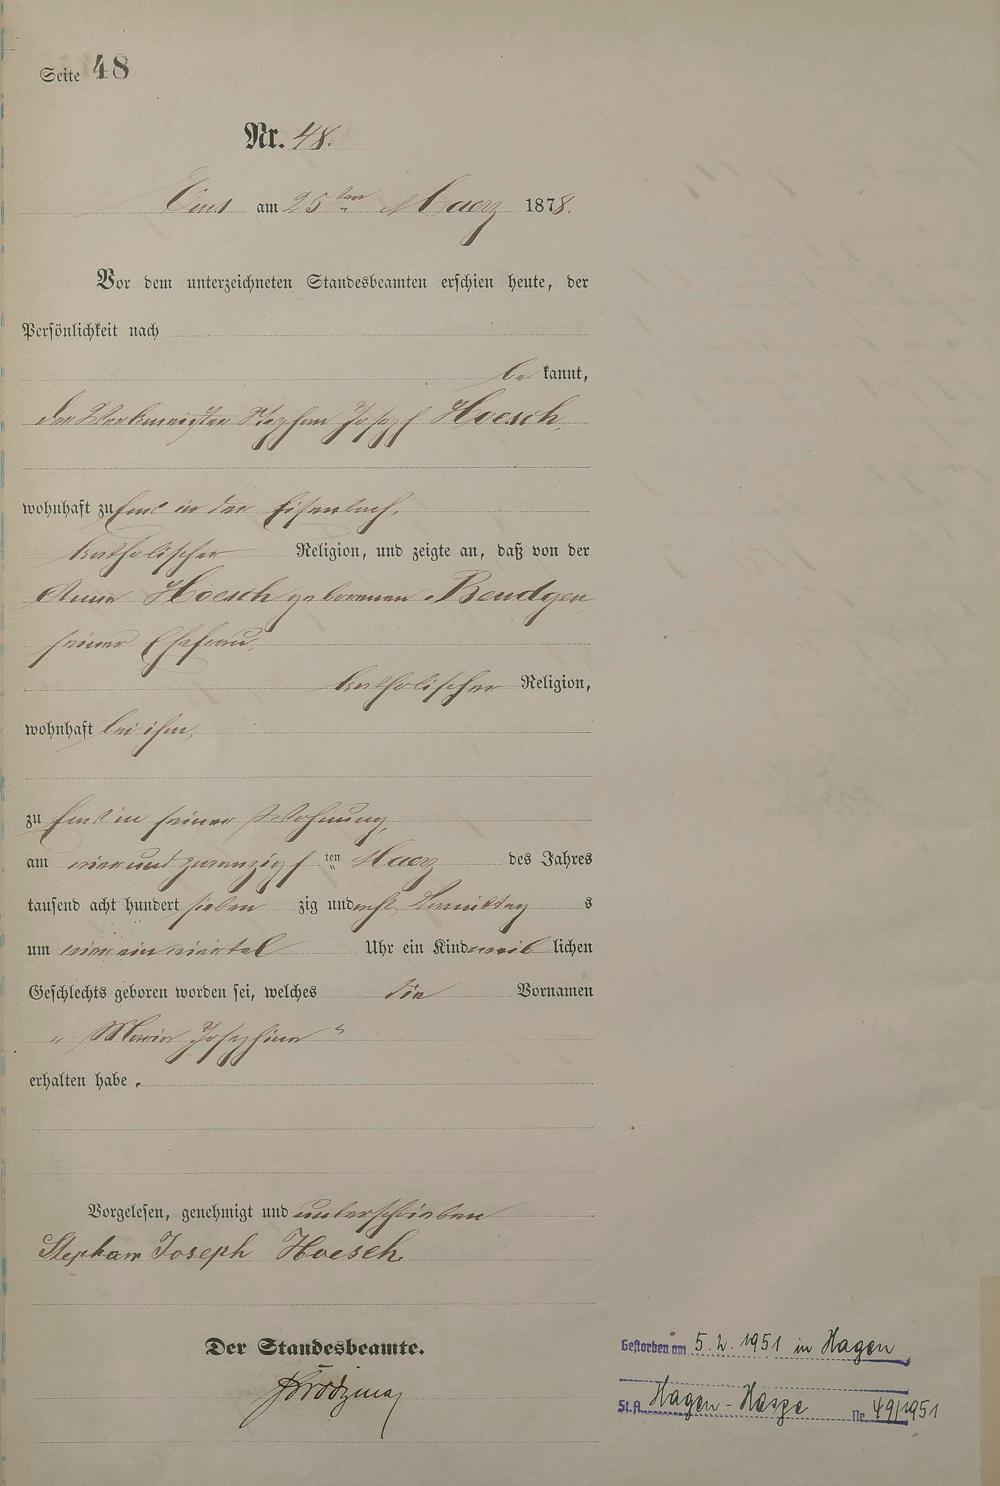 Seite 48
Nr. 48.
Ems am 25ten Maerz 1878.
Vor dem unterzeichneten Standesbeamten erschien heute, der
Persönlichkeit nach
be kannt,
der Werkmeister Stephan Joseph Hoesch,
wohnhaft zu Ems in der Eisenbach,
katholischer Religion, und zeigte an, daß von der
Anna Hoesch geborenen Bendgen
seiner Ehefrau,
katholischer Religion,
wohnhaft bei ihm,
zu Ems in seiner Wohnung,
am vier und zwanzigs ten Maerz des Jahres
tausend acht hundert sieben zig und acht Vormittag s
um vier ein viertel Uhr ein Kind weib lichen
Geschlechts geboren worden sei, welches die Vornamen
„Maria Josephina“
erhalten habe.
Vorgelesen, genehmigt und unterschrieben
Stephan Joseph Hoesch.
Der Standesbeamte.
Gestorben am 5.2.1951 in Hagen
St.A. Hagen-Haspe Nr. 49/1951